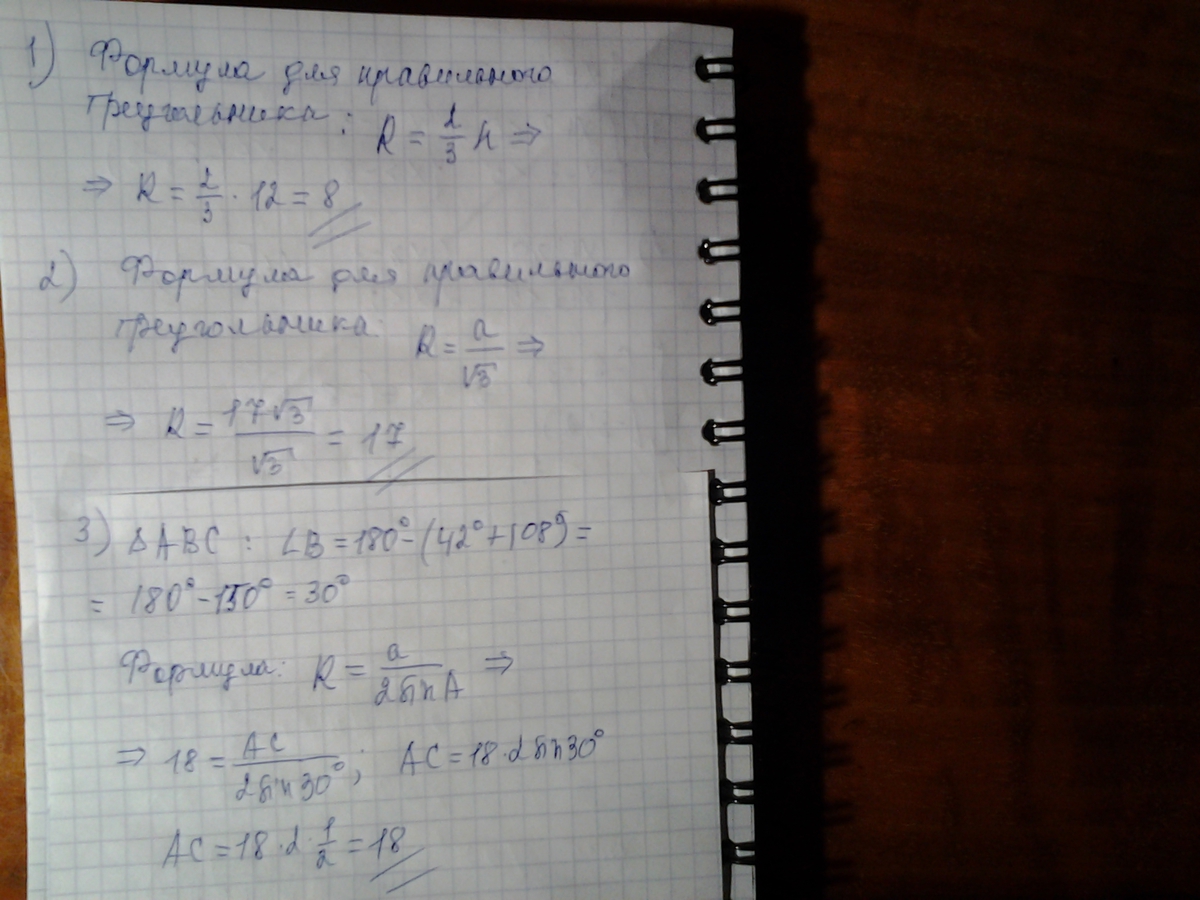 1) Формула для правильного
треугольника: R = 2/3 h ⇒
⇒ R = 2/3 · 12 = 8
2) Формула для правильного
треугольника: R = a/√3 ⇒
⇒ R = 17√3/√3 = 17
3) ΔABC : ∠B = 180° - (42° + 108°) =
= 180° - 150° = 30°
Формула: R = a/2sinA ⇒
⇒ 18 = AC/2sin30° ; AC = 18 · 2sin30°
AC = 18 · 2 · 1/2 = 18